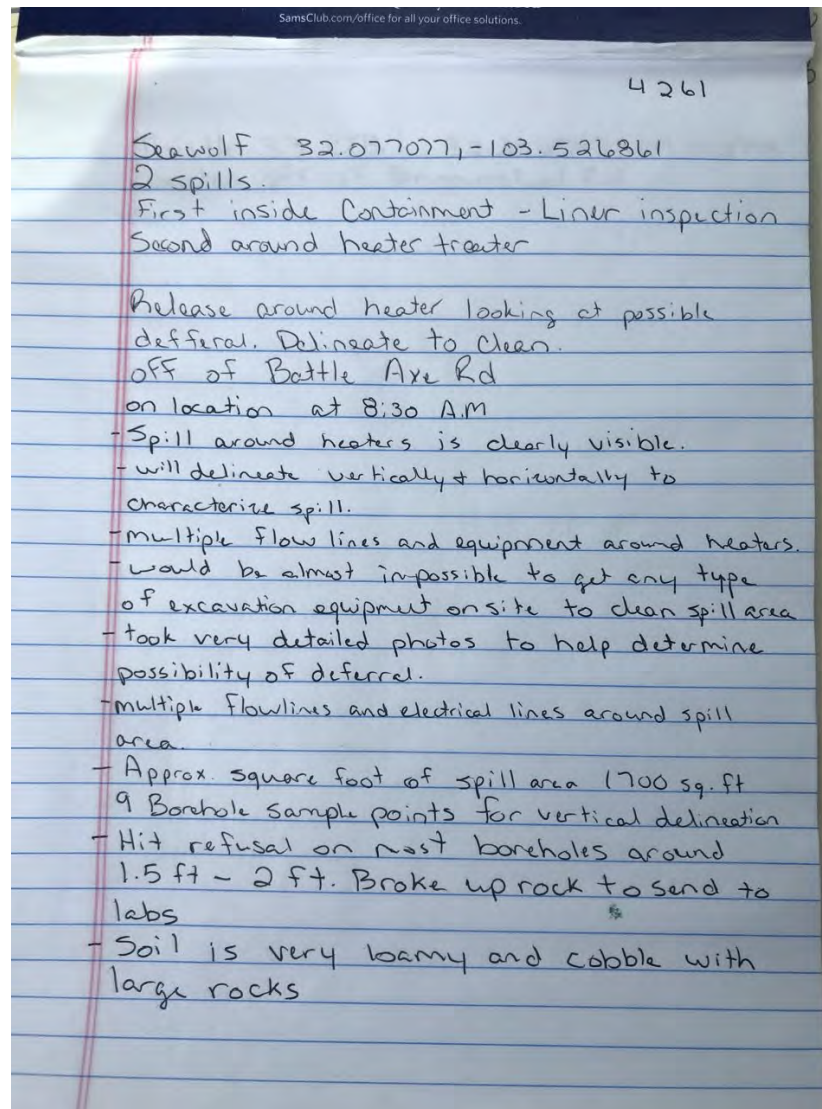 SamsClub.com/office for all your office solutions.
4261
Seawolf 32.077077,-103.526861
2 spills.
First inside Containment - Liner inspection
Second around heater treater
Release around heater looking at possible
defferal. Delineate to clean.
off of Battle Axe Rd
on location at 8:30 A.M
- Spill around heaters is clearly visible.
- will delineate vertically & horizontally to
characterize spill.
- multiple flow lines and equipment around heaters.
- would be almost impossible to get any type
of excavation equipment on site to clean spill area
- took very detailed photos to help determine
possibility of deferral.
- multiple flowlines and electrical lines around spill
area.
- Approx. square foot of spill area 1700 sq. ft
9 Borehole sample points for vertical delineation
- Hit refusal on most boreholes around
1.5 ft - 2 ft. Broke up rock to send to
labs
- Soil is very loamy and cobble with
large rocks